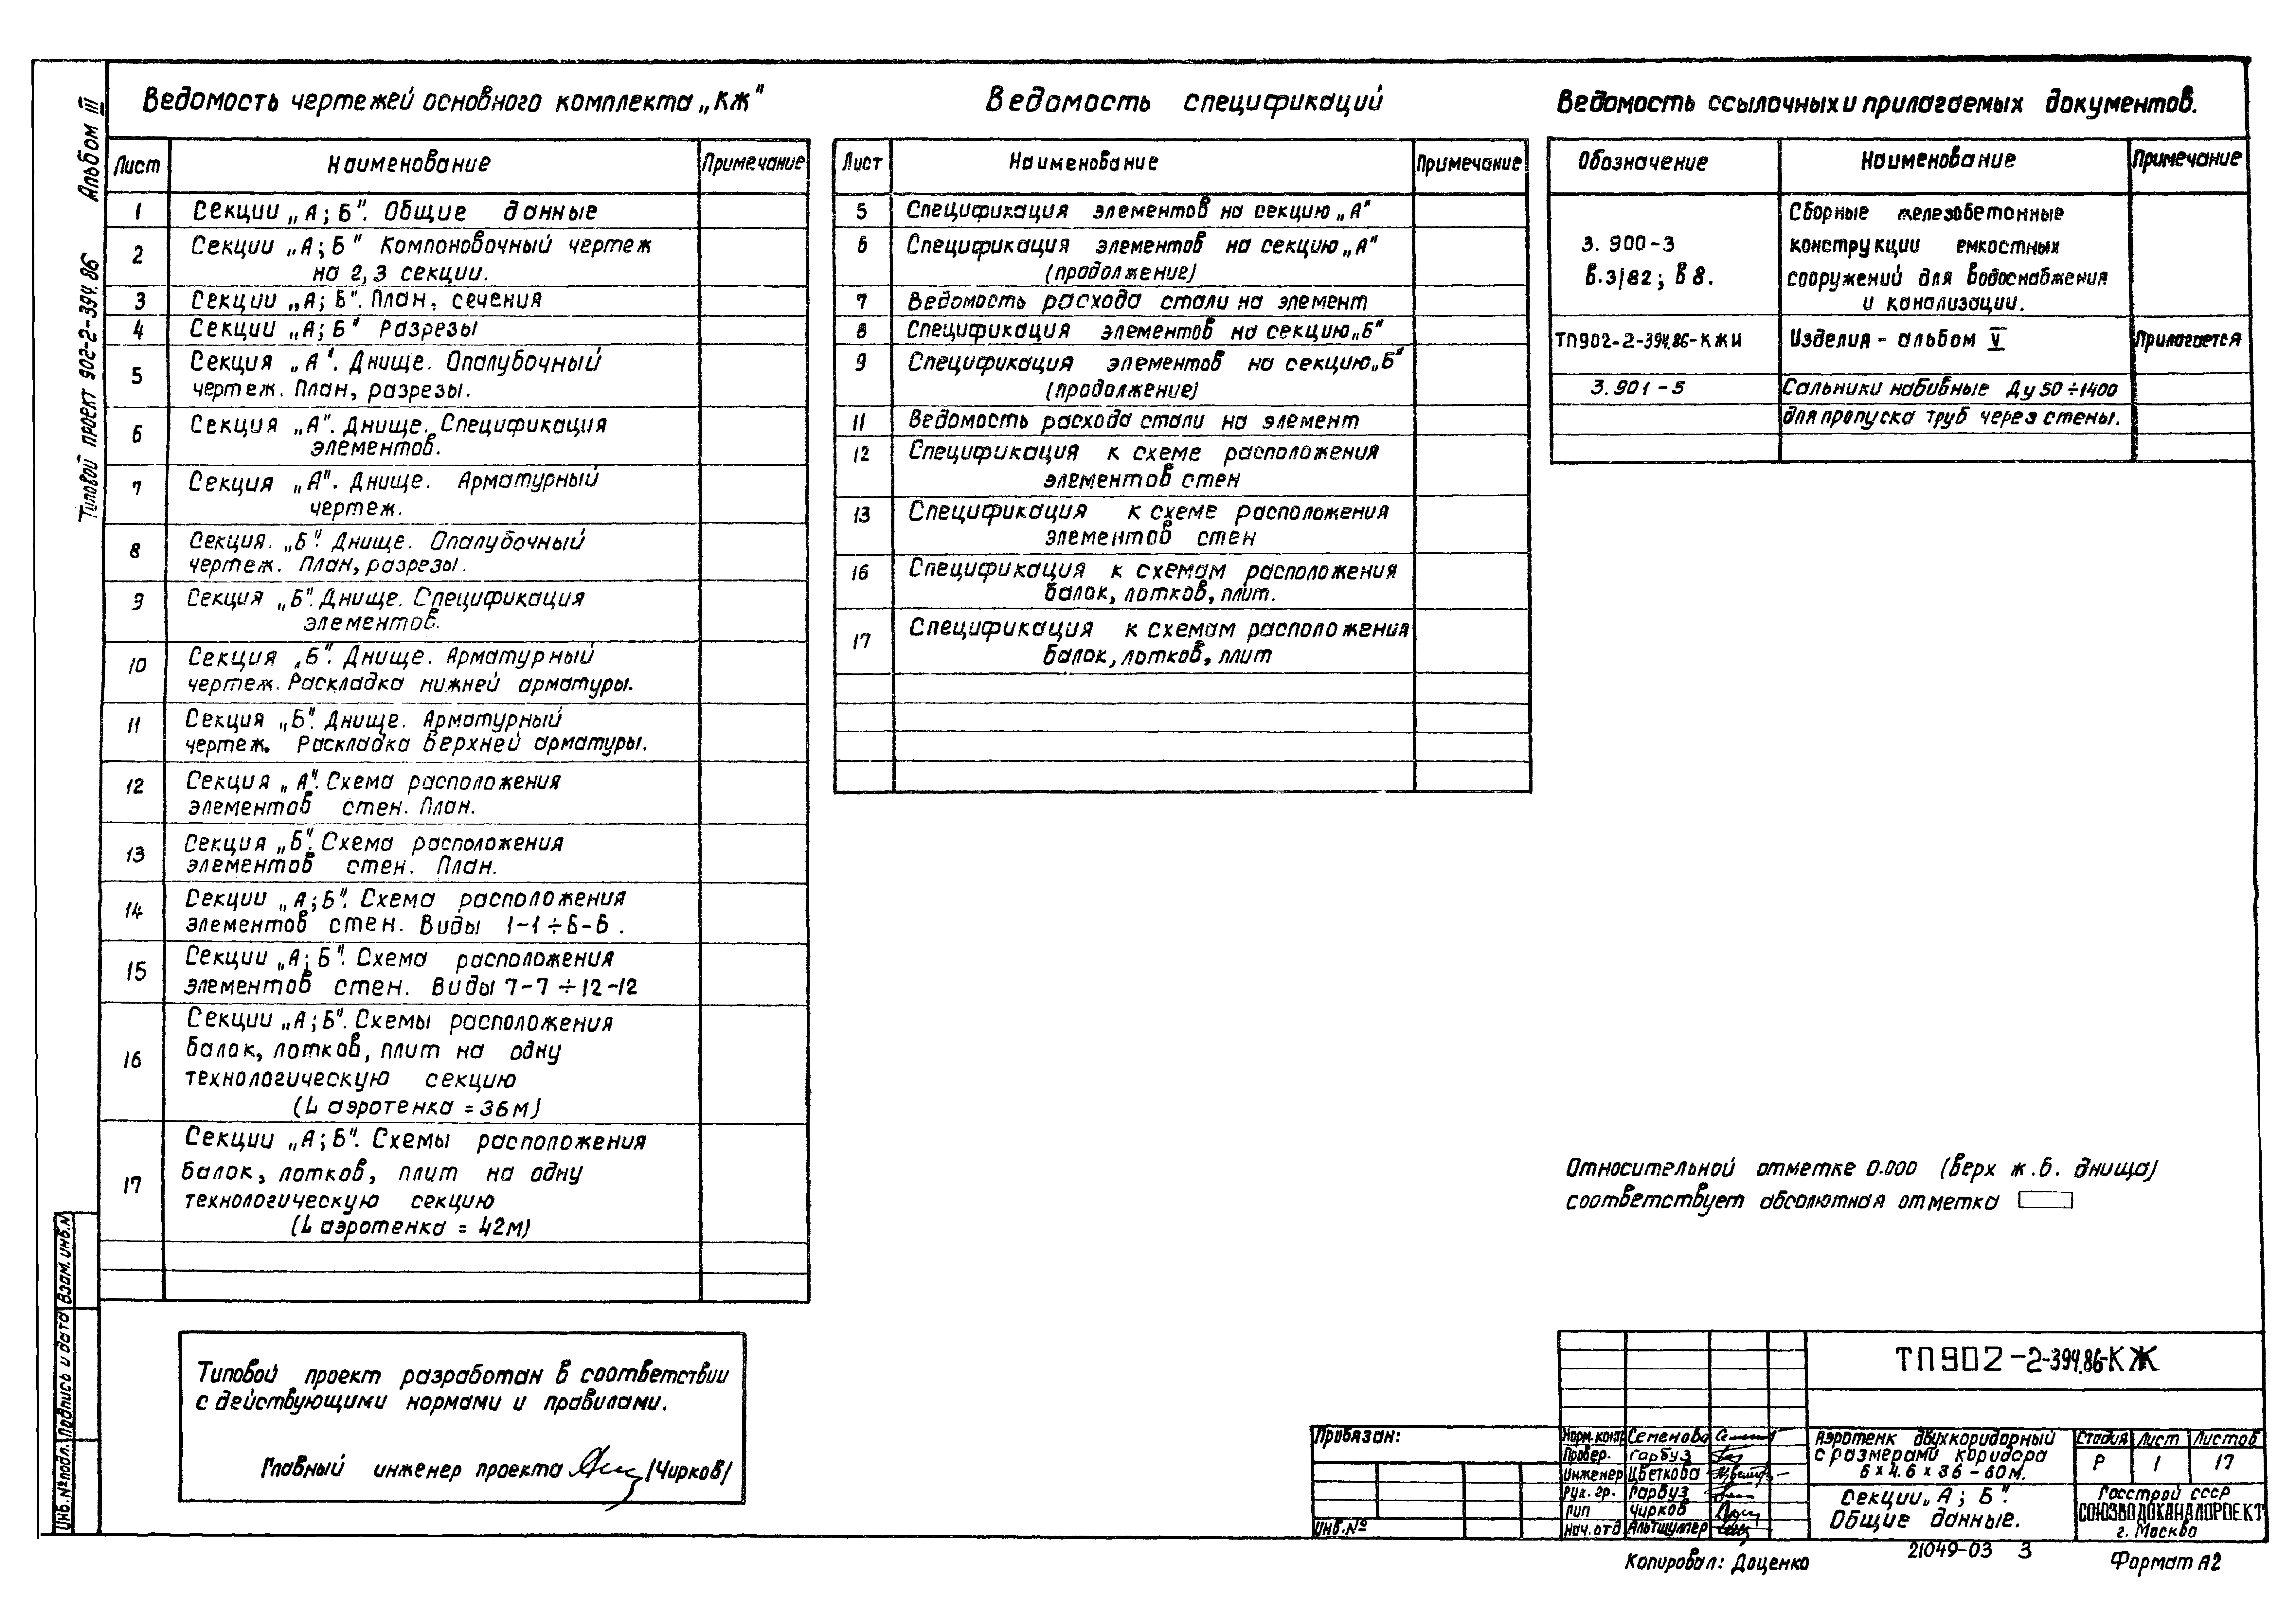 Альбом III
Типовой проект 902-2-394.86
Ведомость чертежей основного комплекта „КЖ"
Лист Наименование Примечание
1 Секции „А; Б". Общие данные
2 Секции „А; Б" Компоновочный чертеж
на 2,3 секции.
3 Секции „А; Б". План, сечения
4 Секции „А; Б" Разрезы
5 Секция „А". Днище. Опалубочный
чертеж. План, разрезы.
6 Секция „А". Днище. Спецификация
элементов.
7 Секция „А". Днище. Арматурный
чертеж.
8 Секция. „Б". Днище. Опалубочный
чертеж. План, разрезы.
9 Секция „Б". Днище. Спецификация
элементов.
10 Секция „Б". Днище. Арматурный
чертеж. Раскладка нижней арматуры.
11 Секция „Б". Днище. Арматурный
чертеж. Раскладка верхней арматуры.
12 Секция „А". Схема расположения
элементов стен. План.
13 Секция „Б". Схема расположения
элементов стен. План.
14 Секции „А; Б". Схема расположения
элементов стен. Виды 1-1 ÷ 6-6.
15 Секции „А; Б". Схема расположения
элементов стен. Виды 7-7 ÷ 12-12
16 Секции „А; Б". Схемы расположения
балок, лотков, плит на одну
технологическую секцию
(L аэротенка = 36м)
17 Секции „А; Б". Схемы расположения
балок, лотков, плит на одну
технологическую секцию
(L аэротенка = 42м)
Ведомость спецификаций
Лист Наименование Примечание
5 Спецификация элементов на секцию „А"
6 Спецификация элементов на секцию „А"
(продолжение)
7 Ведомость расхода стали на элемент
8 Спецификация элементов на секцию „Б"
9 Спецификация элементов на секцию „Б"
(продолжение)
11 Ведомость расхода стали на элемент
12 Спецификация к схеме расположения
элементов стен
13 Спецификация к схеме расположения
элементов стен
16 Спецификация к схемам расположения
балок, лотков, плит.
17 Спецификация к схемам расположения
балок, лотков, плит
Ведомость ссылочных и прилагаемых документов.
Обозначение Наименование Примечание
Сборные железобетонные
3. 900-3 конструкции емкостных
в.3/82; в 8. сооружений для водоснабжения
и канализации.
ТП902-2-394.86-КЖИ Изделия - альбом V Прилагается
3.901-5 Сальники набивные Ду 50÷1400
для пропуска труб через стены.
Относительной отметке 0.000 (верх ж.б. днища)
соответствует абсолютная отметка
Типовой проект разработан в соответствии
с действующими нормами и правилами.
Главный инженер проекта /Чирков/
Инв.№подл. Подпись и дата Взам. инв.№
Привязан:
Инв.№
ТП902-2-394.86-КЖ
Норм.контр Семенова
Провер. Гарбуз
Инженер Цветкова
Рук. гр. Гарбуз
Гип Чирков
Нач. отд Альтшулер
Аэротенк двухкоридорный
с размерами коридора
6 х 4.6 х 36 - 60м.
Секции „А; Б".
Общие данные.
Стадия Лист Листов
Р 1 17
Госстрой СССР
СОЮЗВОДОКАНАЛПРОЕКТ
г. Москва
Копировал: Доценко
21049-03 3
Формат А2